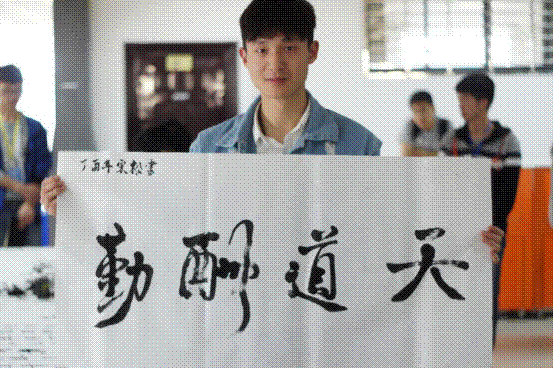 天道酬勤
丁酉年宋松書